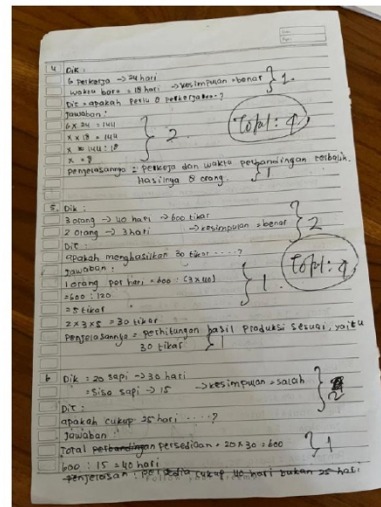 4. Dik :
6 pekerja -> 24 hari
waktu baru = 18 hari -> kesimpulan = benar } 1.
Dit = apakah perlu 8 pekerja....?
Jawaban :
6 x 24 = 144
x x 18 = 144
x = 144 : 18
x = 8
} 2
Total : 4
Penjelasannya = pekerja dan waktu perbandingan terbalik.
Hasilnya 8 orang. } 1
5. Dik :
3 orang -> 40 hari -> 600 tikar
2 orang -> 3 hari -> kesimpulan = benar } 2
Dit :
apakah menghasilkan 30 tikar ....?
Jawaban :
1 orang per hari = 600 : (3 x 40)
= 600 : 120
= 5 tikar
2 x 3 x 5 = 30 tikar
} 1.
Total : 4
Penjelasannya = perhitungan hasil produksi sesuai, yaitu
30 tikar } 1
6 Dik : 20 sapi -> 30 hari
= sisa sapi -> 15 -> kesimpulan = salah }
Dit :
apakah cukup 25 hari ....?
Jawaban :
Total perbandingan Persediaan = 20 x 30 = 600
600 : 15 = 40 hari
} 1
Penjelasan : cukup 40 hari bukan 25 hari